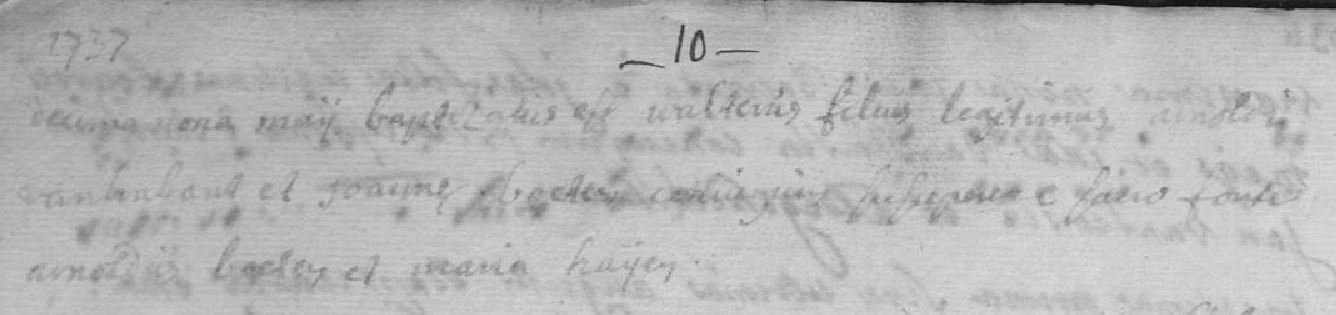 1737
— 10 —
decima nona maij baptizatus est walterus filius legitimus arnoldi
vanbrabant et joannæ boeten coniugum susceperunt e sacro fonte
arnoldus boeten et maria haijen.